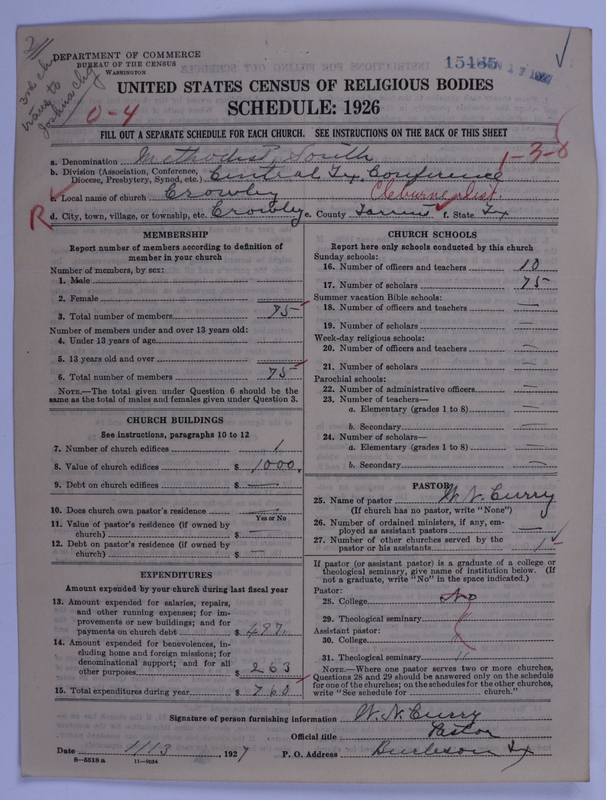 3rd chg
trans to
Joshua chg
DEPARTMENT OF COMMERCE
BUREAU OF THE CENSUS
WASHINGTON
0-4
UNITED STATES CENSUS OF RELIGIOUS BODIES
SCHEDULE: 1926
FILL OUT A SEPARATE SCHEDULE FOR EACH CHURCH. SEE INSTRUCTIONS ON THE BACK OF THIS SHEET
a. Denomination Methodist, South
b. Division (Association, Conference, Diocese, Presbytery, Synod, etc.) Central Tex. Conference 1-3-0
c. Local name of church Crowley Cleburne Dist.
R d. City, town, village, or township, etc. Crowley e. County Tarrant f. State Tex
MEMBERSHIP
Report number of members according to definition of
member in your church
Number of members, by sex:
1. Male
2. Female
3. Total number of members 75
Number of members under and over 13 years old:
4. Under 13 years of age
5. 13 years old and over
6. Total number of members 75
NOTE.—The total given under Question 6 should be the
same as the total of males and females given under Question 3.
CHURCH BUILDINGS
See instructions, paragraphs 10 to 12
7. Number of church edifices 1
8. Value of church edifices $ 1000.
9. Debt on church edifices $ —
10. Does church own pastor's residence —
Yes or No
11. Value of pastor's residence (if owned by
church) $ —
12. Debt on pastor's residence (if owned by
church) $ —
EXPENDITURES
Amount expended by your church during last fiscal year
13. Amount expended for salaries, repairs,
and other running expenses; for im-
provements or new buildings; and for
payments on church debt $ 497.
14. Amount expended for benevolences, in-
cluding home and foreign missions; for
denominational support; and for all
other purposes $ 263
15. Total expenditures during year $ 760
CHURCH SCHOOLS
Report here only schools conducted by this church
Sunday schools:
16. Number of officers and teachers 10
17. Number of scholars 75
Summer vacation Bible schools:
18. Number of officers and teachers —
19. Number of scholars —
Week-day religious schools:
20. Number of officers and teachers —
21. Number of scholars —
Parochial schools:
22. Number of administrative officers —
23. Number of teachers—
a. Elementary (grades 1 to 8) —
b. Secondary —
24. Number of scholars—
a. Elementary (grades 1 to 8) —
b. Secondary —
PASTOR
25. Name of pastor W. N. Curry
(If church has no pastor, write "None")
26. Number of ordained ministers, if any, em-
ployed as assistant pastors —
27. Number of other churches served by the
pastor or his assistants 1
If pastor (or assistant pastor) is a graduate of a college or
theological seminary, give name of institution below. (If
not a graduate, write "No" in the space indicated.)
Pastor:
28. College No
29. Theological seminary
Assistant pastor:
30. College
31. Theological seminary "
NOTE.—Where one pastor serves two or more churches,
Questions 28 and 29 should be answered only on the schedule
for one of the churches; on the schedules for the other churches,
write "See schedule for church."
Signature of person furnishing information W. N. Curry
Official title Pastor
Date 1/13, 1927 P. O. Address Burleson Tx
8—5518 a 11—9034